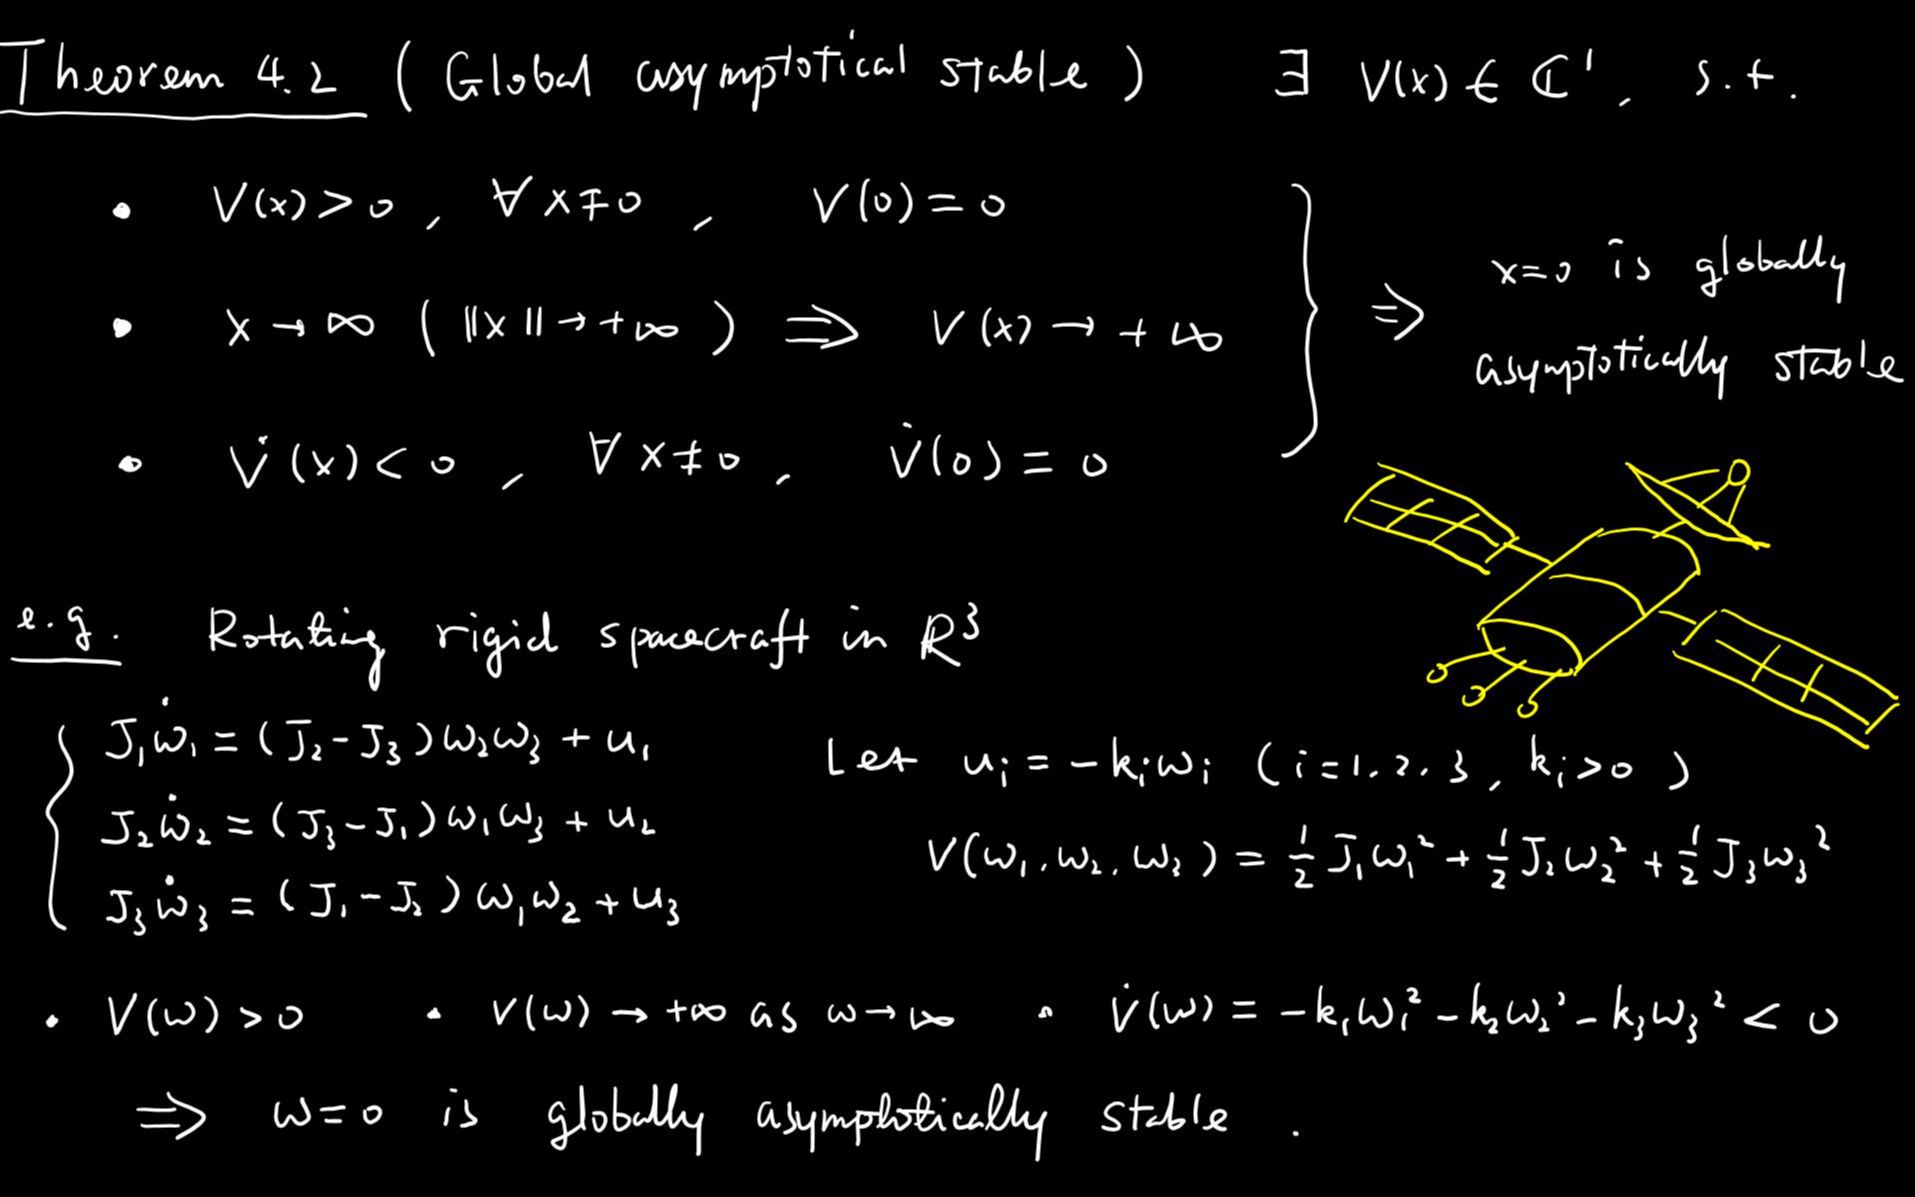 Theorem 4.2 ( Global asymptotical stable ) ∃ V(x) ∈ ℂ¹, s.t.
• V(x) > 0, ∀ x ≠ 0, V(0) = 0
• x → ∞ ( ||x|| → +∞ ) ⇒ V(x) → +∞
• V̇(x) < 0, ∀ x ≠ 0, V̇(0) = 0
⇒ x=0 is globally
asymptotically stable
e.g. Rotating rigid spacecraft in R³
J₁ω̇₁ = (J₂-J₃)ω₂ω₃ + u₁
J₂ω̇₂ = (J₃-J₁)ω₁ω₃ + u₂
J₃ω̇₃ = (J₁-J₂)ω₁ω₂ + u₃
Let uᵢ = -kᵢωᵢ (i=1.2.3, kᵢ>0)
V(ω₁.ω₂.ω₃) = ½J₁ω₁² + ½J₂ω₂² + ½J₃ω₃²
• V(ω) > 0 • V(ω) → +∞ as ω → ∞ • V̇(ω) = -k₁ω₁² - k₂ω₂² - k₃ω₃² < 0
⇒ ω=0 is globally asymptotically stable.